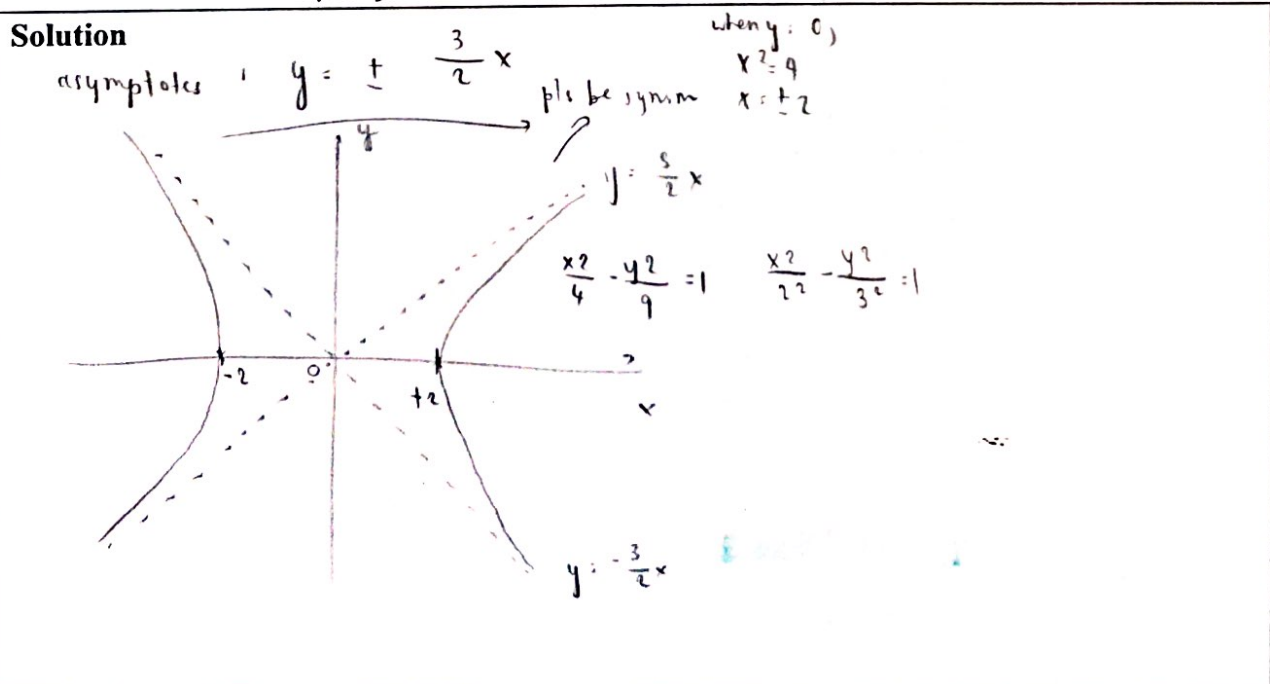 Solution
asymptotes : y = ± 3/2 x
when y = 0,
x² = 4
x = ± 2
pls be symm
y
y = 3/2 x
x²/4 - y²/9 = 1
x²/2² - y²/3² = 1
-2
0
+2
x
y = -3/2 x